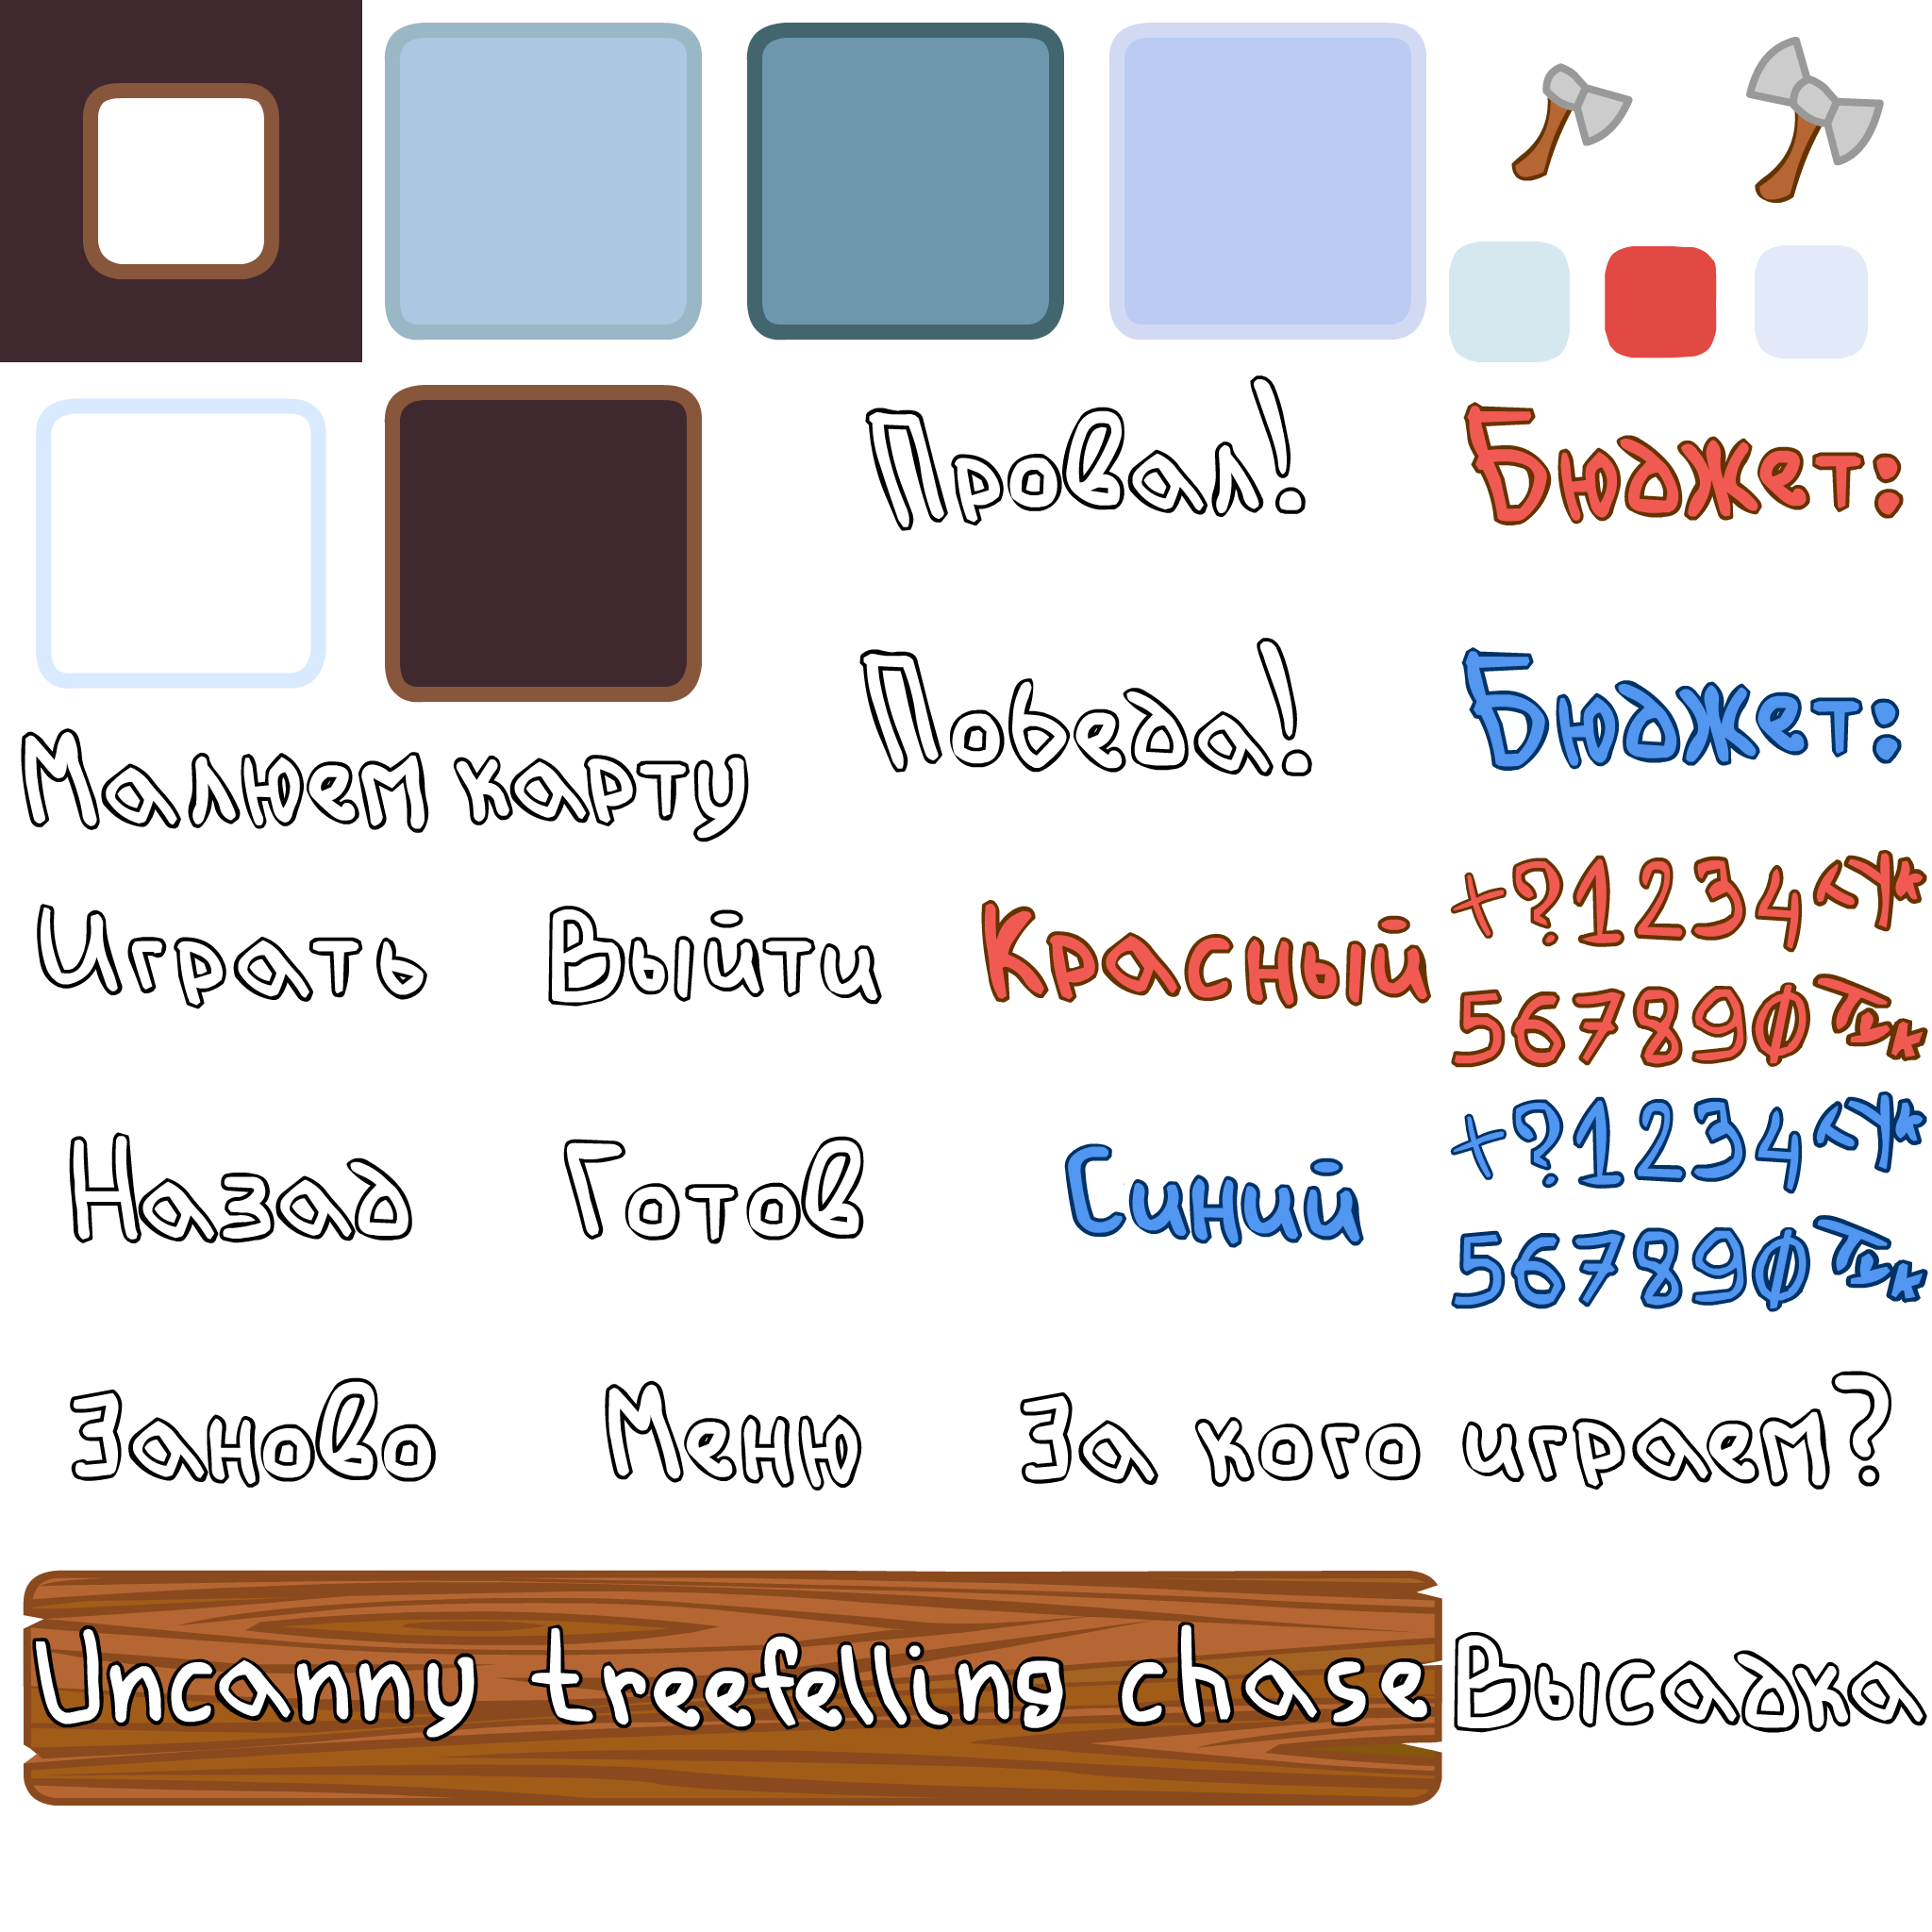 Провал!
Бюджет:
Победа!
Бюджет:
Малюем карту
+?1234
Играть
Выйти
Красный
567890
+?1234
Назад
Готов
Синий
567890
Заново
Меню
За кого играем?
Uncanny treefelling chase
Высадка